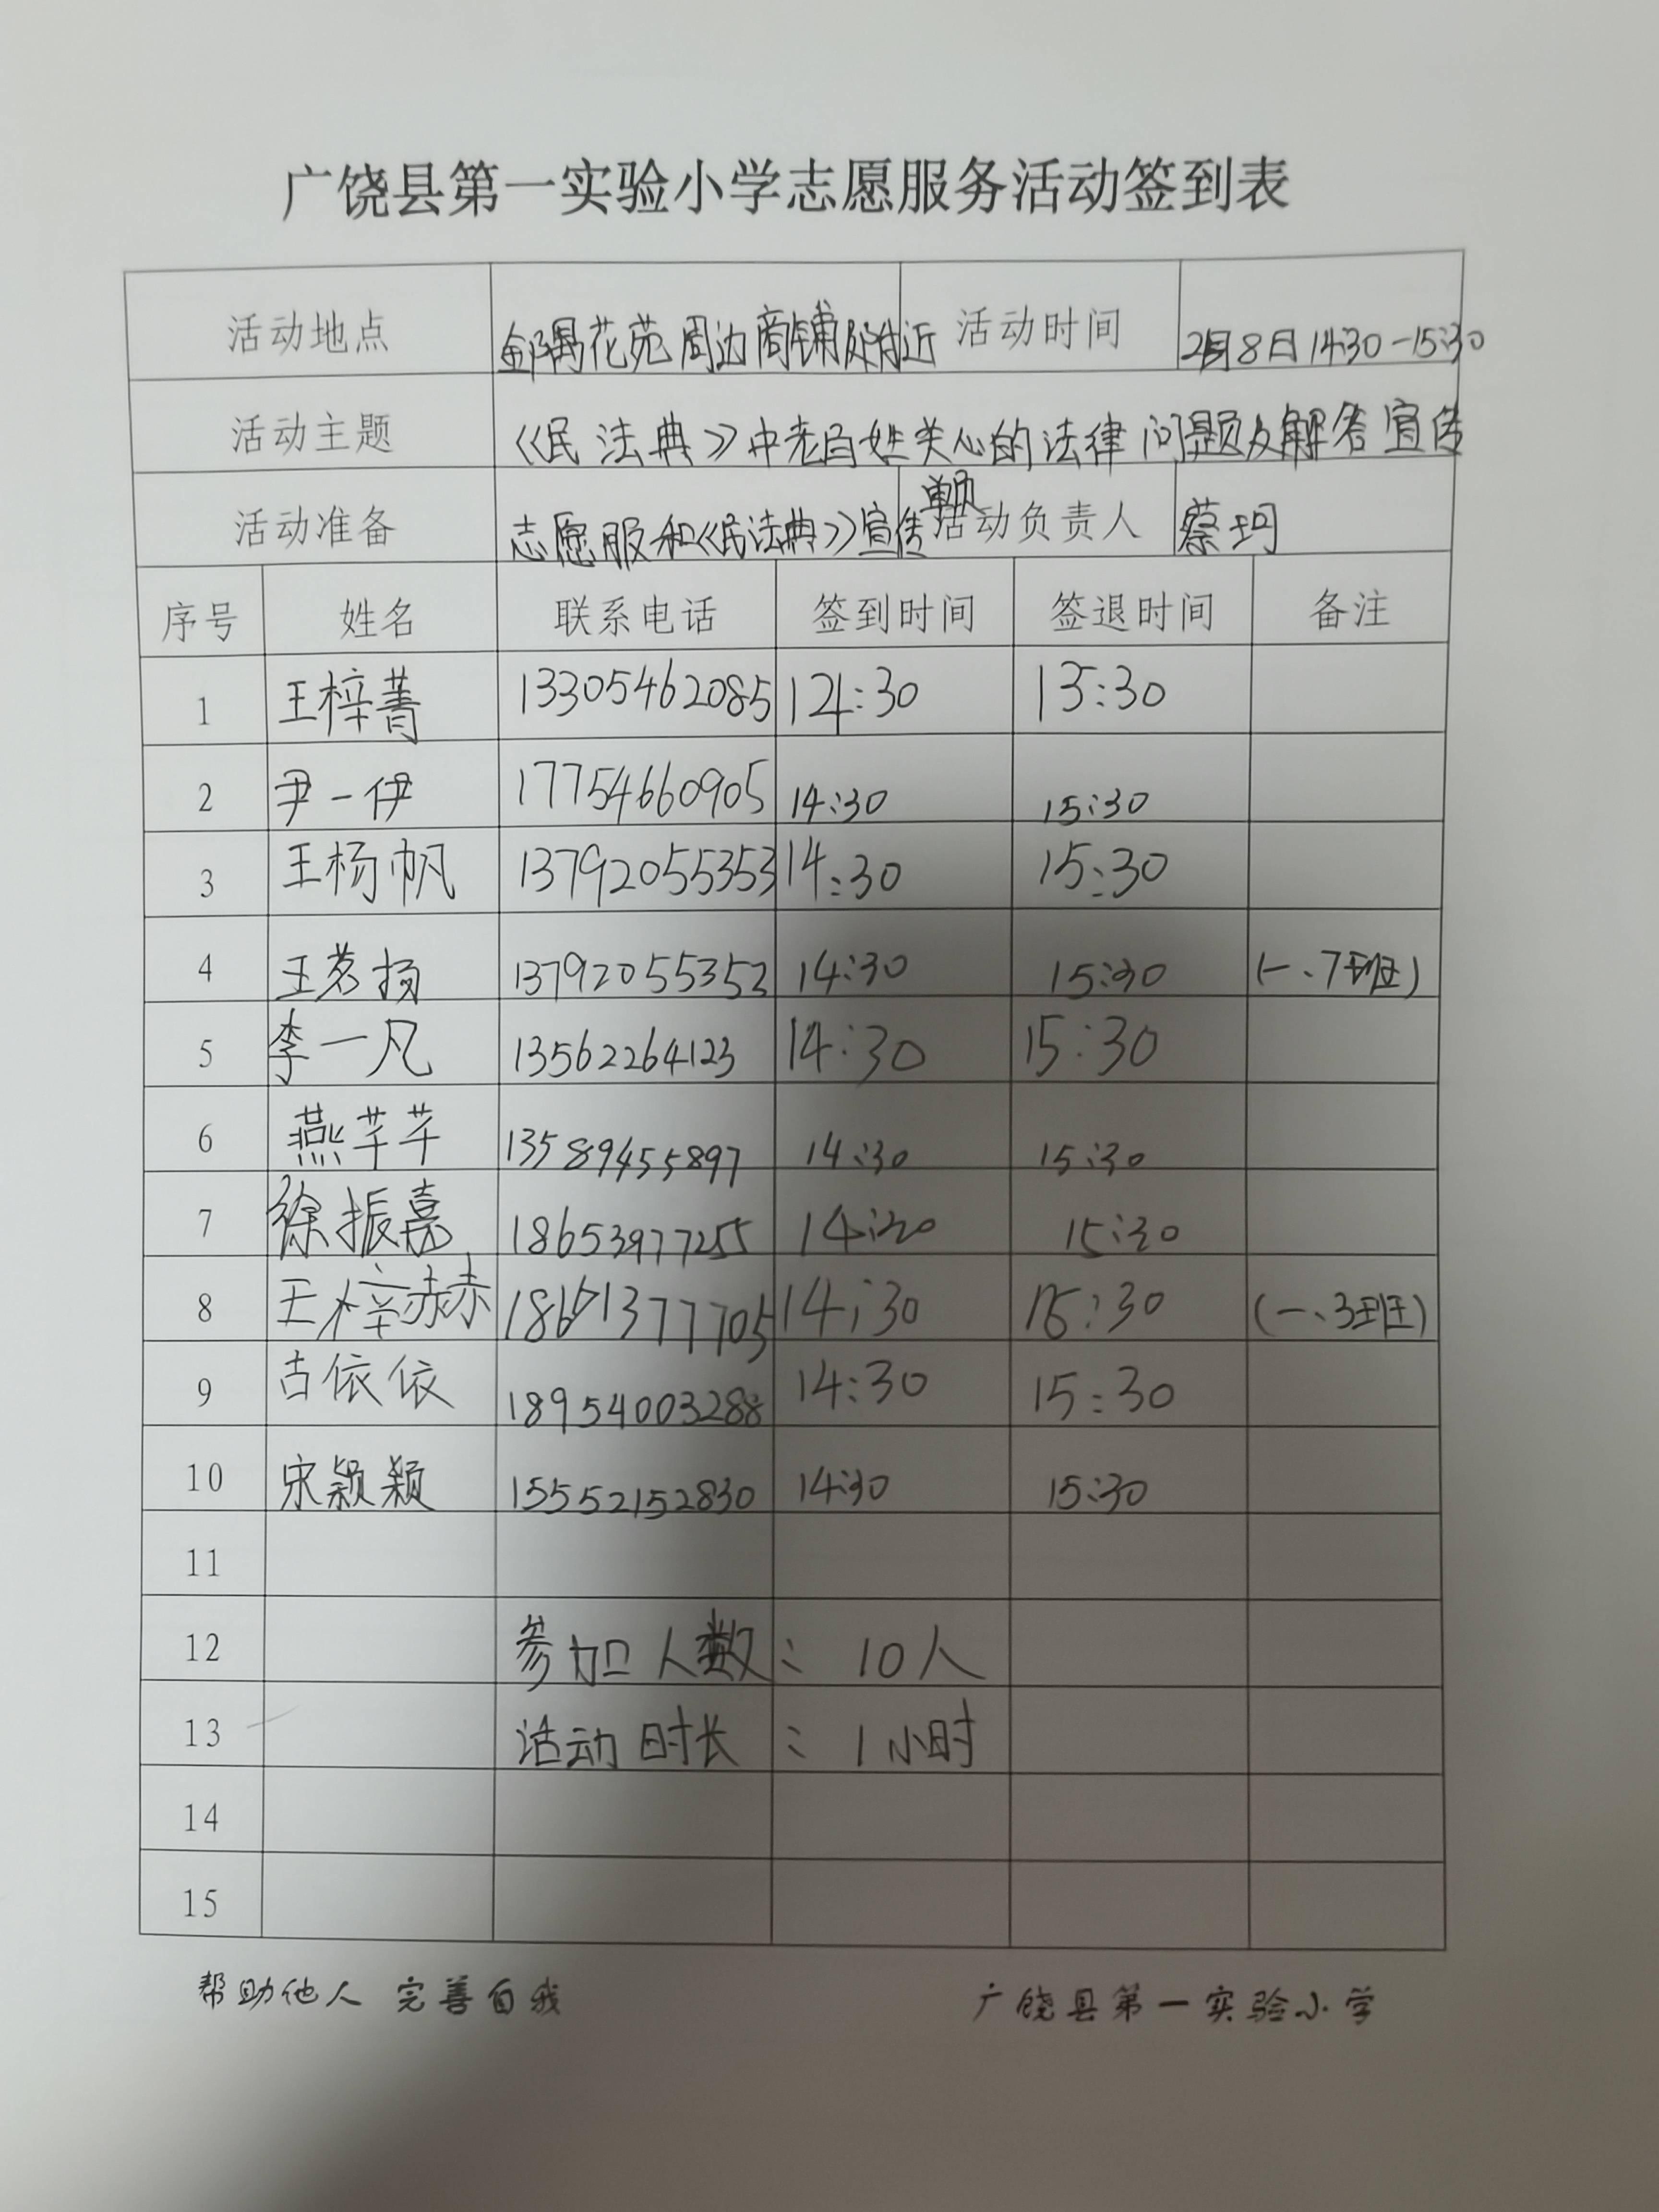 广饶县第一实验小学志愿服务活动签到表
活动地点 花苑周边商铺及附近 活动时间 2月8日14:30-15:30
活动主题 《民法典》中老百姓关心的法律问题及解答宣传
活动准备 志愿服和《民法典》宣传单页 活动负责人 蔡珂
序号 姓名 联系电话 签到时间 签退时间 备注
1 王梓菁 13305462085 14:30 15:30
2 尹一伊 17754660905 14:30 15:30
3 王杨帆 13792055353 14:30 15:30
4 王茗扬 13792055353 14:30 15:30 (一、7班)
5 李一凡 13562264123 14:30 15:30
6 燕芊芊 13589455897 14:30 15:30
7 徐振嘉 18653977255 14:30 15:30
8 王梓赫 14:30 15:30 (一、3班)
9 古依依 18954003288 14:30 15:30
10 宋颖颖 15552152830 14:30 15:30
11
12 参加人数: 10人
13 活动时长: 1小时
14
15
帮助他人 完善自我 广饶县第一实验小学